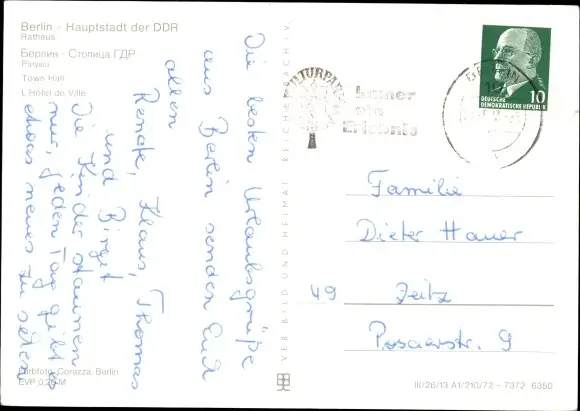 Berlin - Hauptstadt der DDR
Rathaus
Берлин - Столица ГДР
Ратуша
Town Hall
L'Hôtel de Ville
Die besten Urlaubsgrüße
aus Berlin senden Euch
allen
Renate, Klaus, Thomas
und Birgit
Die Kinder staunen
nur, jeden Tag gibt es
etwas neues zu sehen
Farbfoto: Corazza, Berlin
EVP 0,20 M
VEB BILD UND HEIMAT REICHENBACH I. V.
KULTURPARK
Immer
ein
Erlebnis
BERLIN
DEUTSCHE
DEMOKRATISCHE REPUBLIK
10
Familie
Dieter Hauer
49 Zeitz
Posaerstr. 9
III/26/13 A1/210/72 - 7372 6350